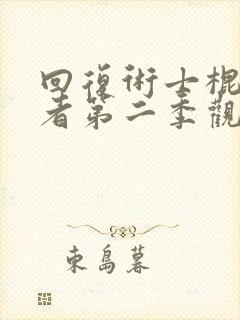 回復術士棍
者第二季觀
東島暮